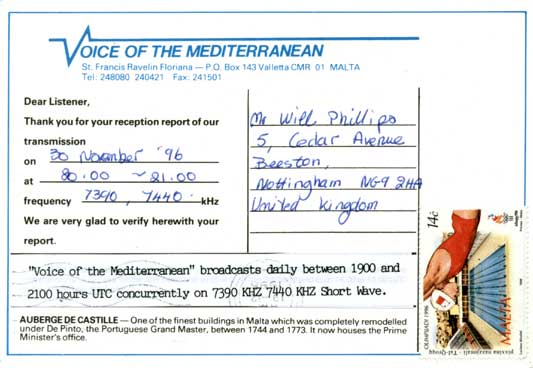 VOICE OF THE MEDITERRANEAN
St. Francis Ravelin Floriana — P.O. Box 143 Valletta CMR 01 MALTA
Tel: 248080 240421 Fax: 241501
Dear Listener,
Thank you for your reception report of our
transmission
on 30 November '96
at 20.00 ~ 21.00
frequency 7390, 7440 kHz
We are very glad to verify herewith your
report.
Mr Will Phillips
5, Cedar Avenue
Beeston,
Nottingham NG9 2HA
United Kingdom
14c
OLIMPJADI 1996
MALTA
pixxina nazzjonali - Tal-Qroqq
"Voice of the Mediterranean" broadcasts daily between 1900 and
2100 hours UTC concurrently on 7390 KHZ 7440 KHZ Short Wave.
AUBERGE DE CASTILLE — One of the finest buildings in Malta which was completely remodelled
under De Pinto, the Portuguese Grand Master, between 1744 and 1773. It now houses the Prime
Minister's office.